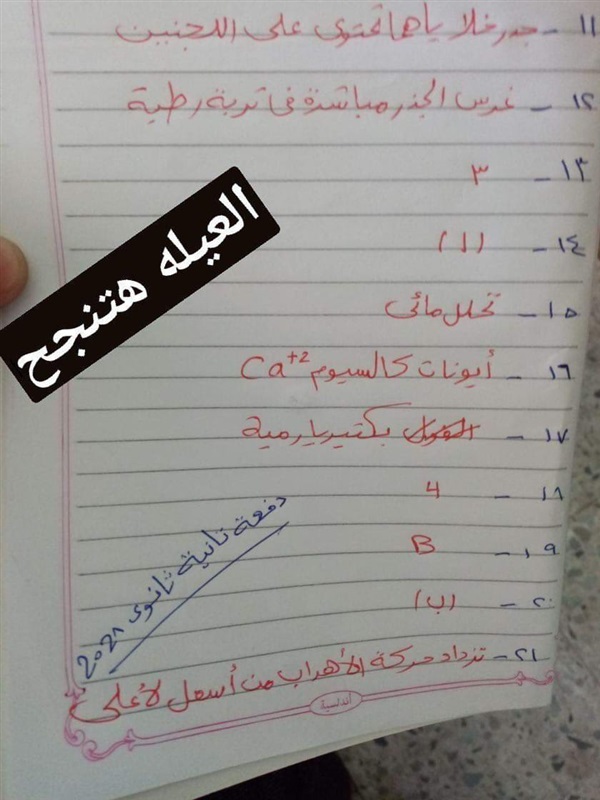 ١١ - جدر خلاياها تحتوى على اللجنين
١٢ - غرس الجذر مباشرة فى تربة رطبة
١٣ - ٣
١٤ - (أ)
١٥ - تحلل مائى
١٦ - أيونات كالسيوم Ca+2
١٧ - بكتيريا رمية
١٨ - 4
١٩ - B
٢٠ - (ب)
٢١ - تزداد حركة الأهداب من أسفل لأعلى
العيله هتنجح
دفعة تانية ثانوى 2021
أندلسية